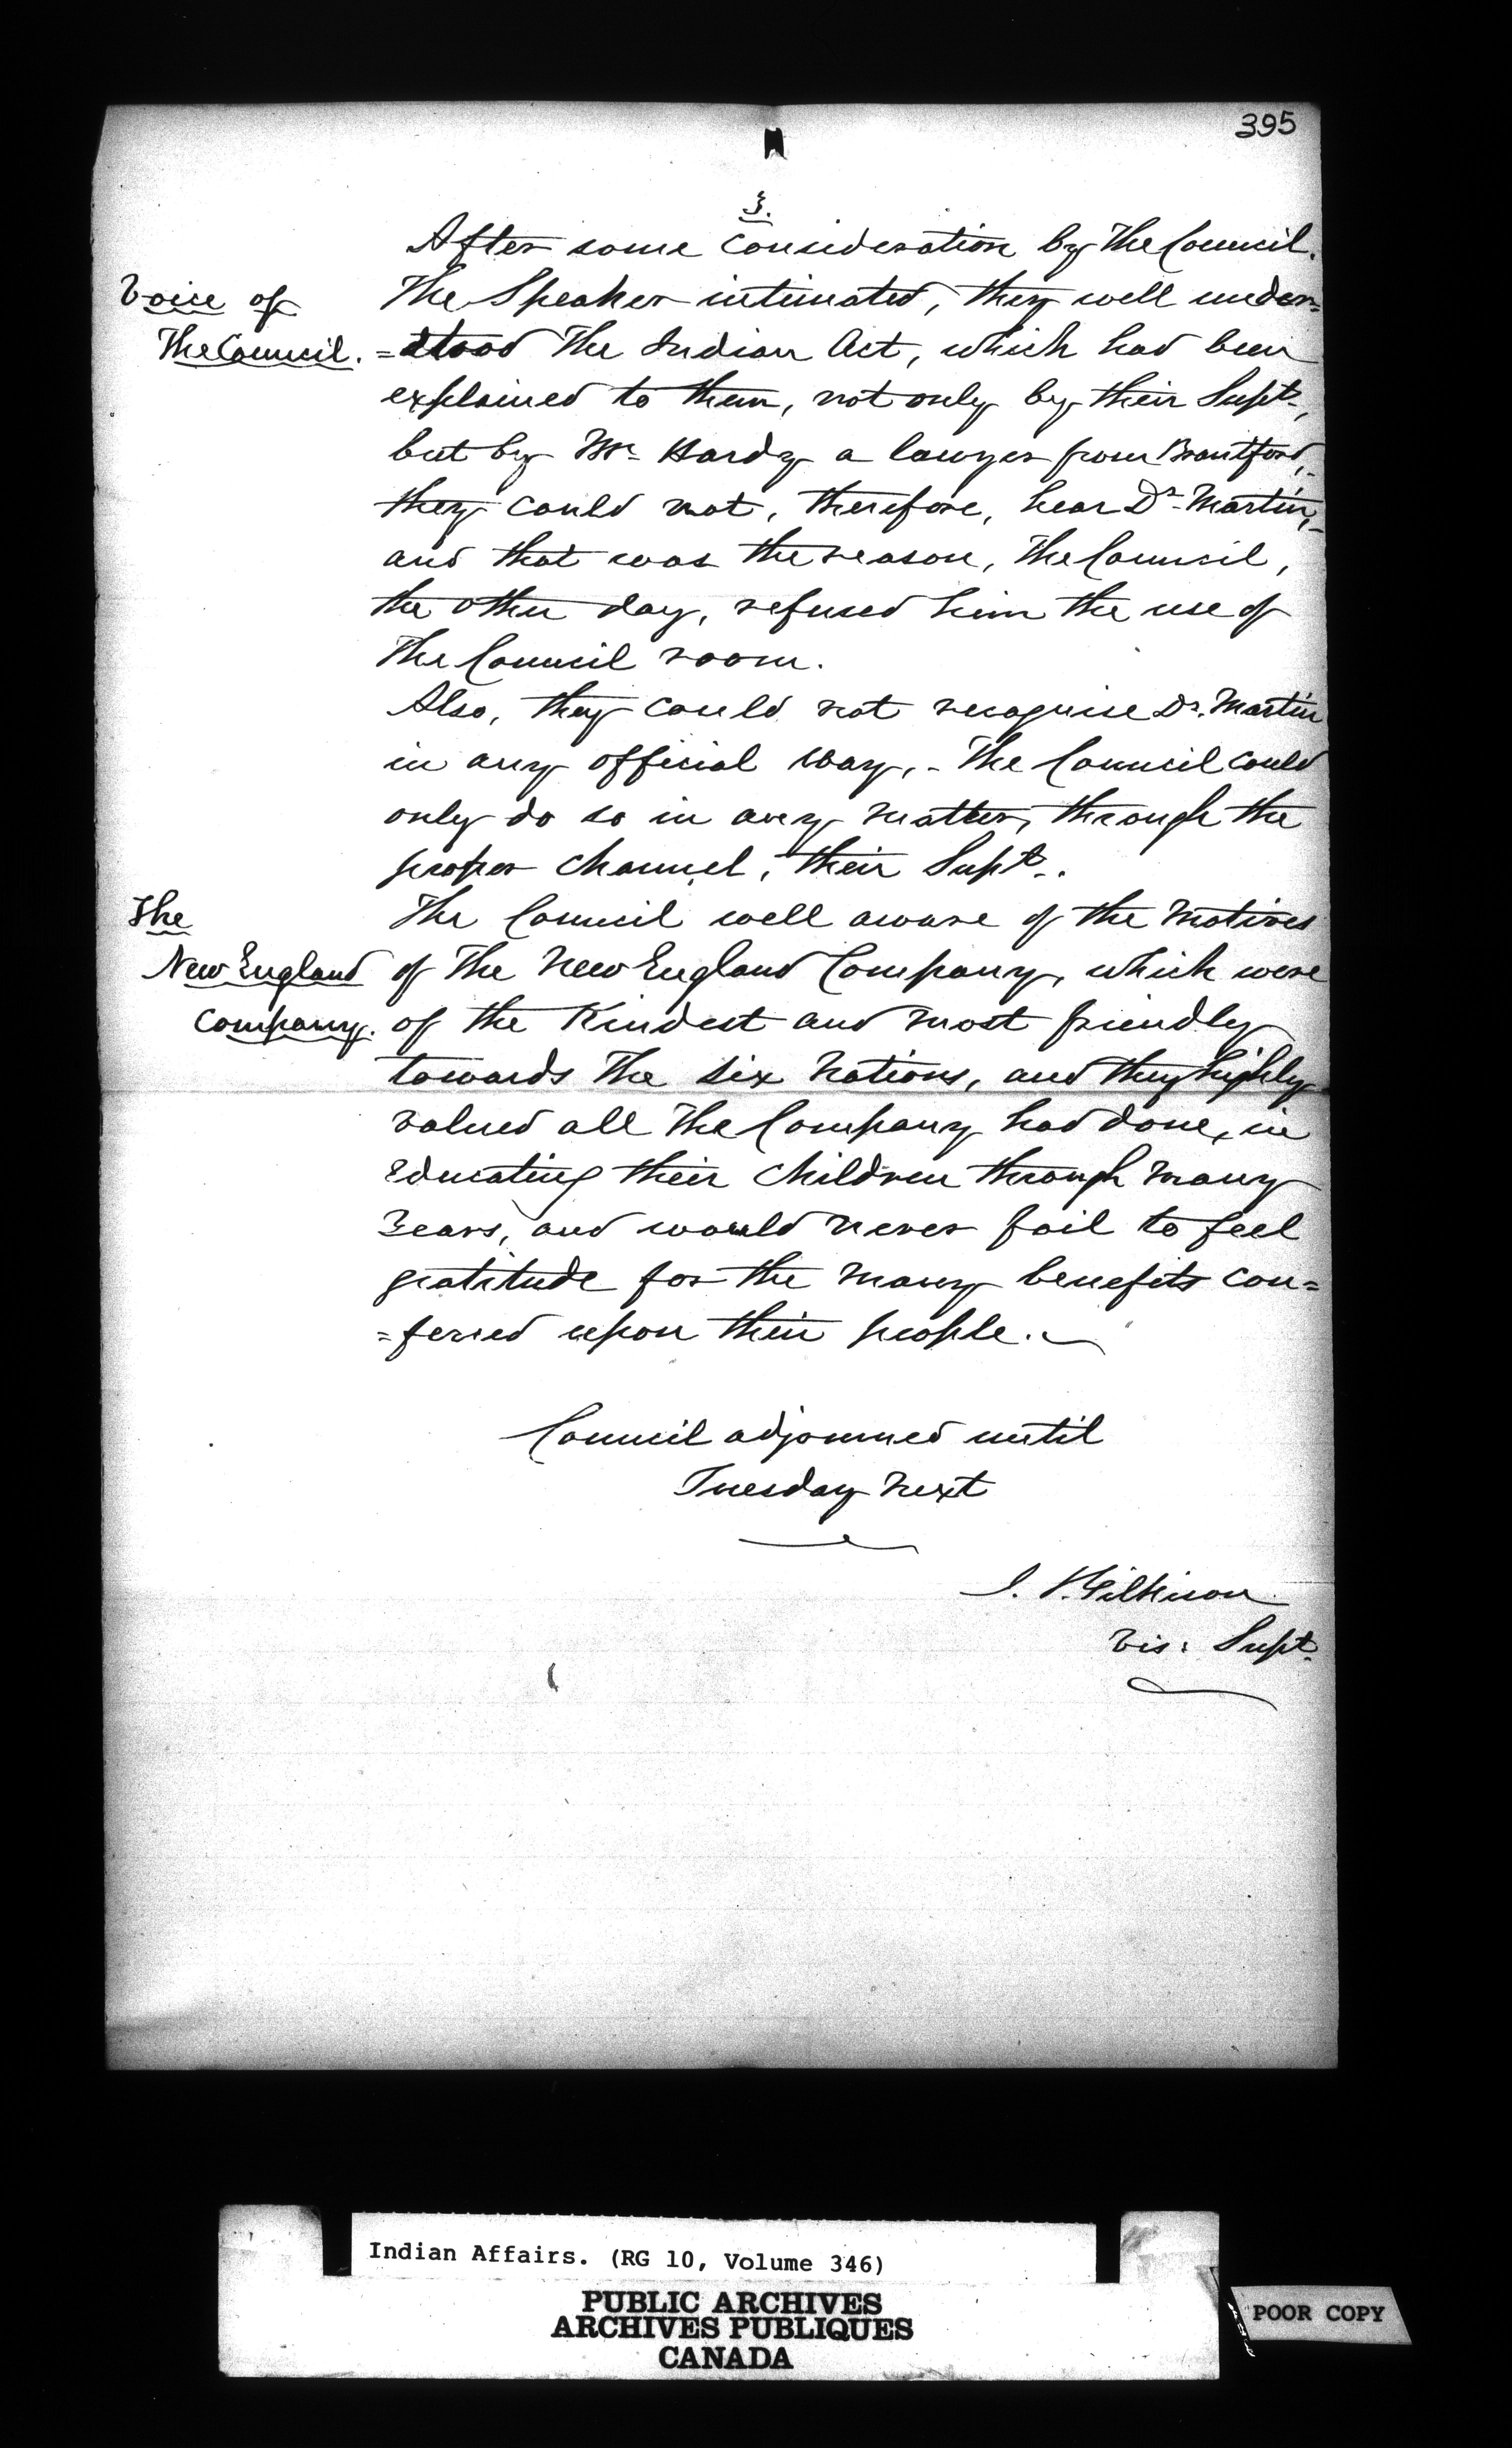 395
3.
After some Consideration by The Council.
Voice of
The Council.
The Speaker intimated, they well under=
=stood The Indian Act, which had been
explained to them, not only by their Supt.,
but by Mr. Hardy a lawyer from Brantford,
they could not, therefore, hear Dr. Martin,
and that was the reason, The Council,
the other day, refused him the use of
The Council room.
Also, they could not recognise Dr. Martin
in any official way, - The Council could
only do so in any matter, through the
proper channel, their Supt..
The
New England
Company.
The Council well aware of the motives
of The New England Company, which were
of the Kindest and most friendly
towards The Six Nations, and they highly
valued all The Company had done, in
Educating their Children through many
Years, and would never fail to feel
gratitude for the many benefits con=
=ferred upon their people.
Council adjourned until
Tuesday next
J. T. Gilkison
Vis: Supt.
Indian Affairs. (RG 10, Volume 346)
PUBLIC ARCHIVES
ARCHIVES PUBLIQUES
CANADA
POOR COPY